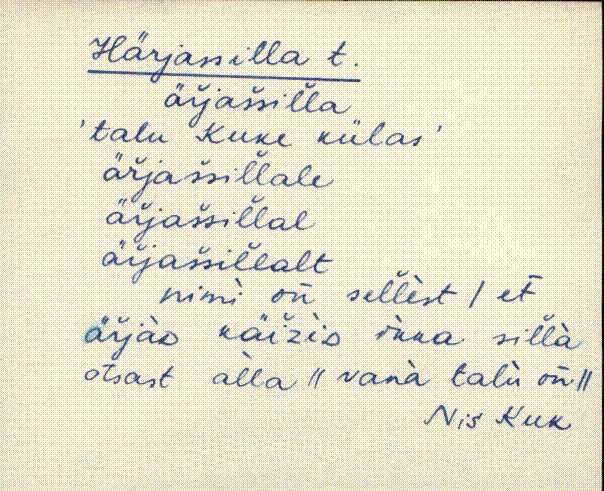 Härjassilla t.
äŕjaššiĺĺa
'talu Kuke külas'
äŕjaššiĺĺale
äŕjaššiĺĺal
äŕjaššiĺĺalt
nimì on̄ selĺèst / et̄
äŕjàD käizìD ìkka sillà
otsast àlla // vanà talù on̄ //
Nis Kuk